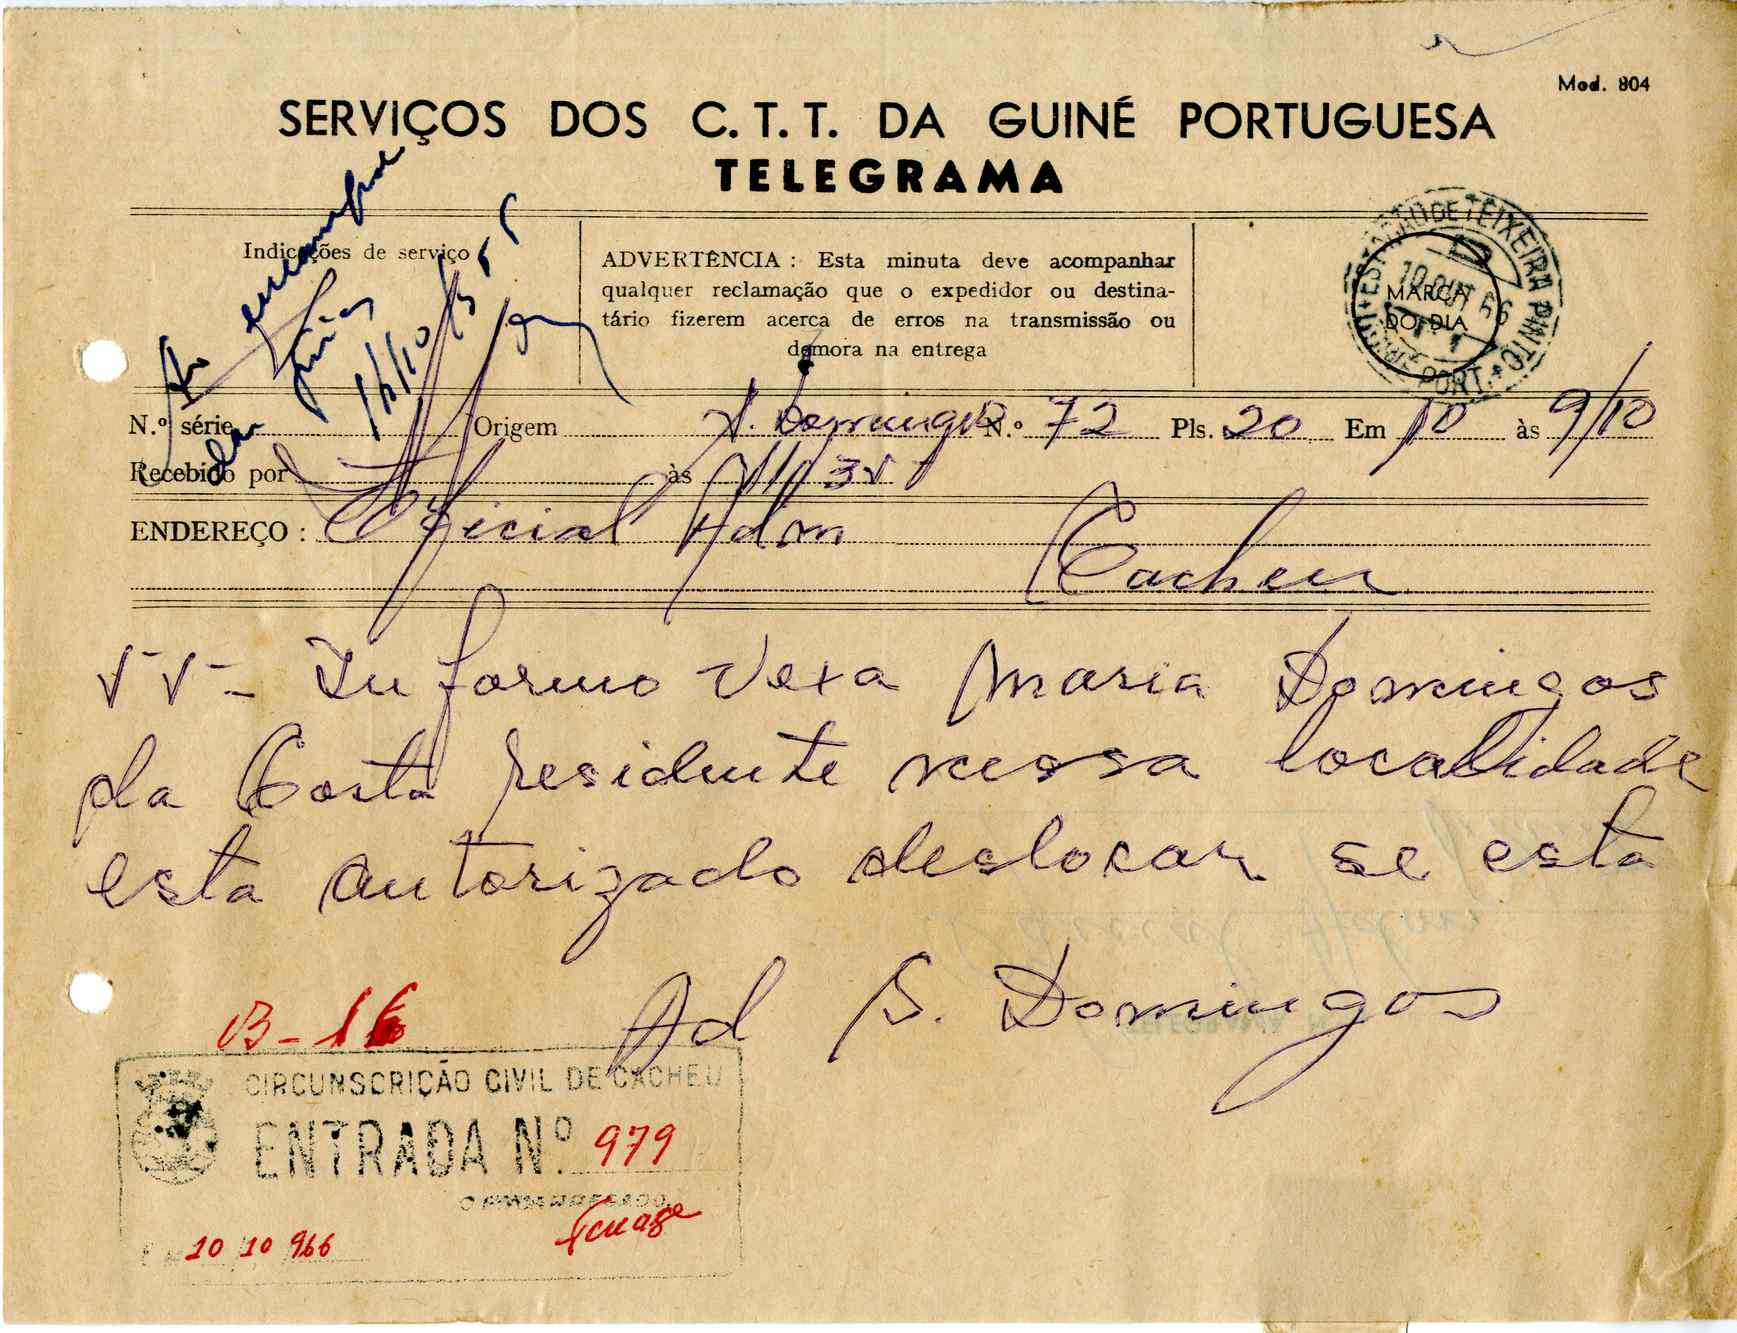 Mod. 804
SERVIÇOS DOS C. T. T. DA GUINÉ PORTUGUESA
TELEGRAMA
Indicações de serviço
ADVERTÊNCIA : Esta minuta deve acompanhar
qualquer reclamação que o expedidor ou destina-
tário fizerem acerca de erros na transmissão ou
demora na entrega
ESTAÇÃO DE TEIXEIRA PINTO
PORT.
10 OUT 66
MARCA
DO DIA
Ao
N.º série Origem S. Domingos N.º 72 Pls. 20 Em 10 às 9/10
Recebido por às 11/35
ENDEREÇO : Oficial Adm
Cacheu
Informo Vexa Maria Domingos
da Costa residente nessa localidade
esta autorizado deslocar se esta
Ad S. Domingos
B-16
CIRCUNSCRIÇÃO CIVIL DE CACHEU
ENTRADA N.º 979
10 10 966